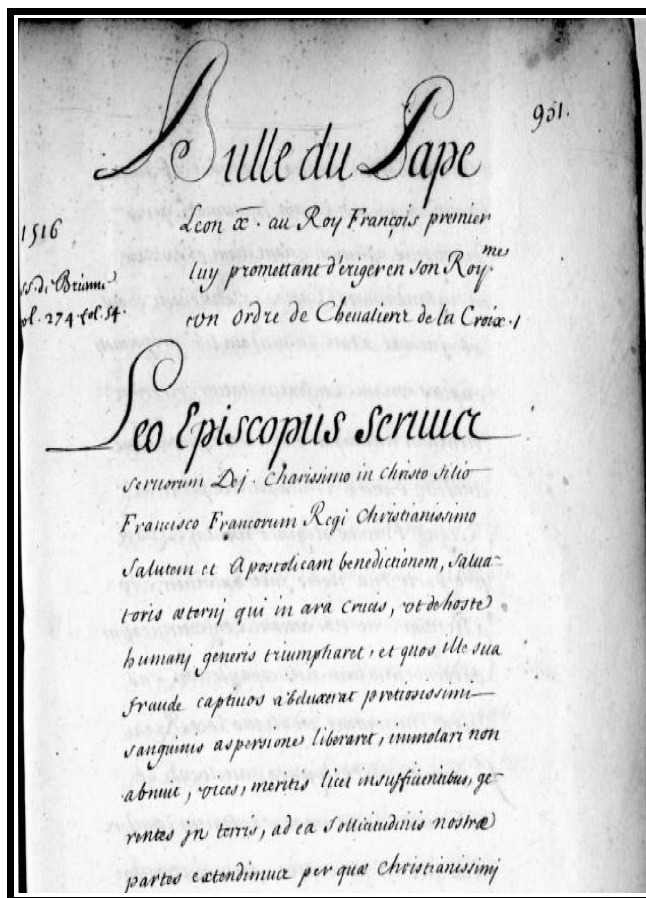 931.
Bulle du Pape
Leon X. au Roy François premier
1516
luy promettant d'eriger en son Roy.me
ss. de Brienne
ol. 274 fol. 54.
un ordre de Chevaliers de la Croix./
Leo Episcopus servus
servorum Dej. Charissimo in christo filio
Francisco Francorum Regi Christianissimo
Salutem et Apostolicam benedictionem, Salua-
toris æternj qui in arâ Crucis, vt de hoste
humanj generis triumpharet, et quos ille sua
fraude captiuos abduxerat pretiosissimi
sanguinis aspersione liboraret, immolari non
abnuit, vices, meritis licet insufficientibus, ge-
rentes jn terris, ad ea sollicitudinis nostræ
partes extendimus per quæ Christianissimj